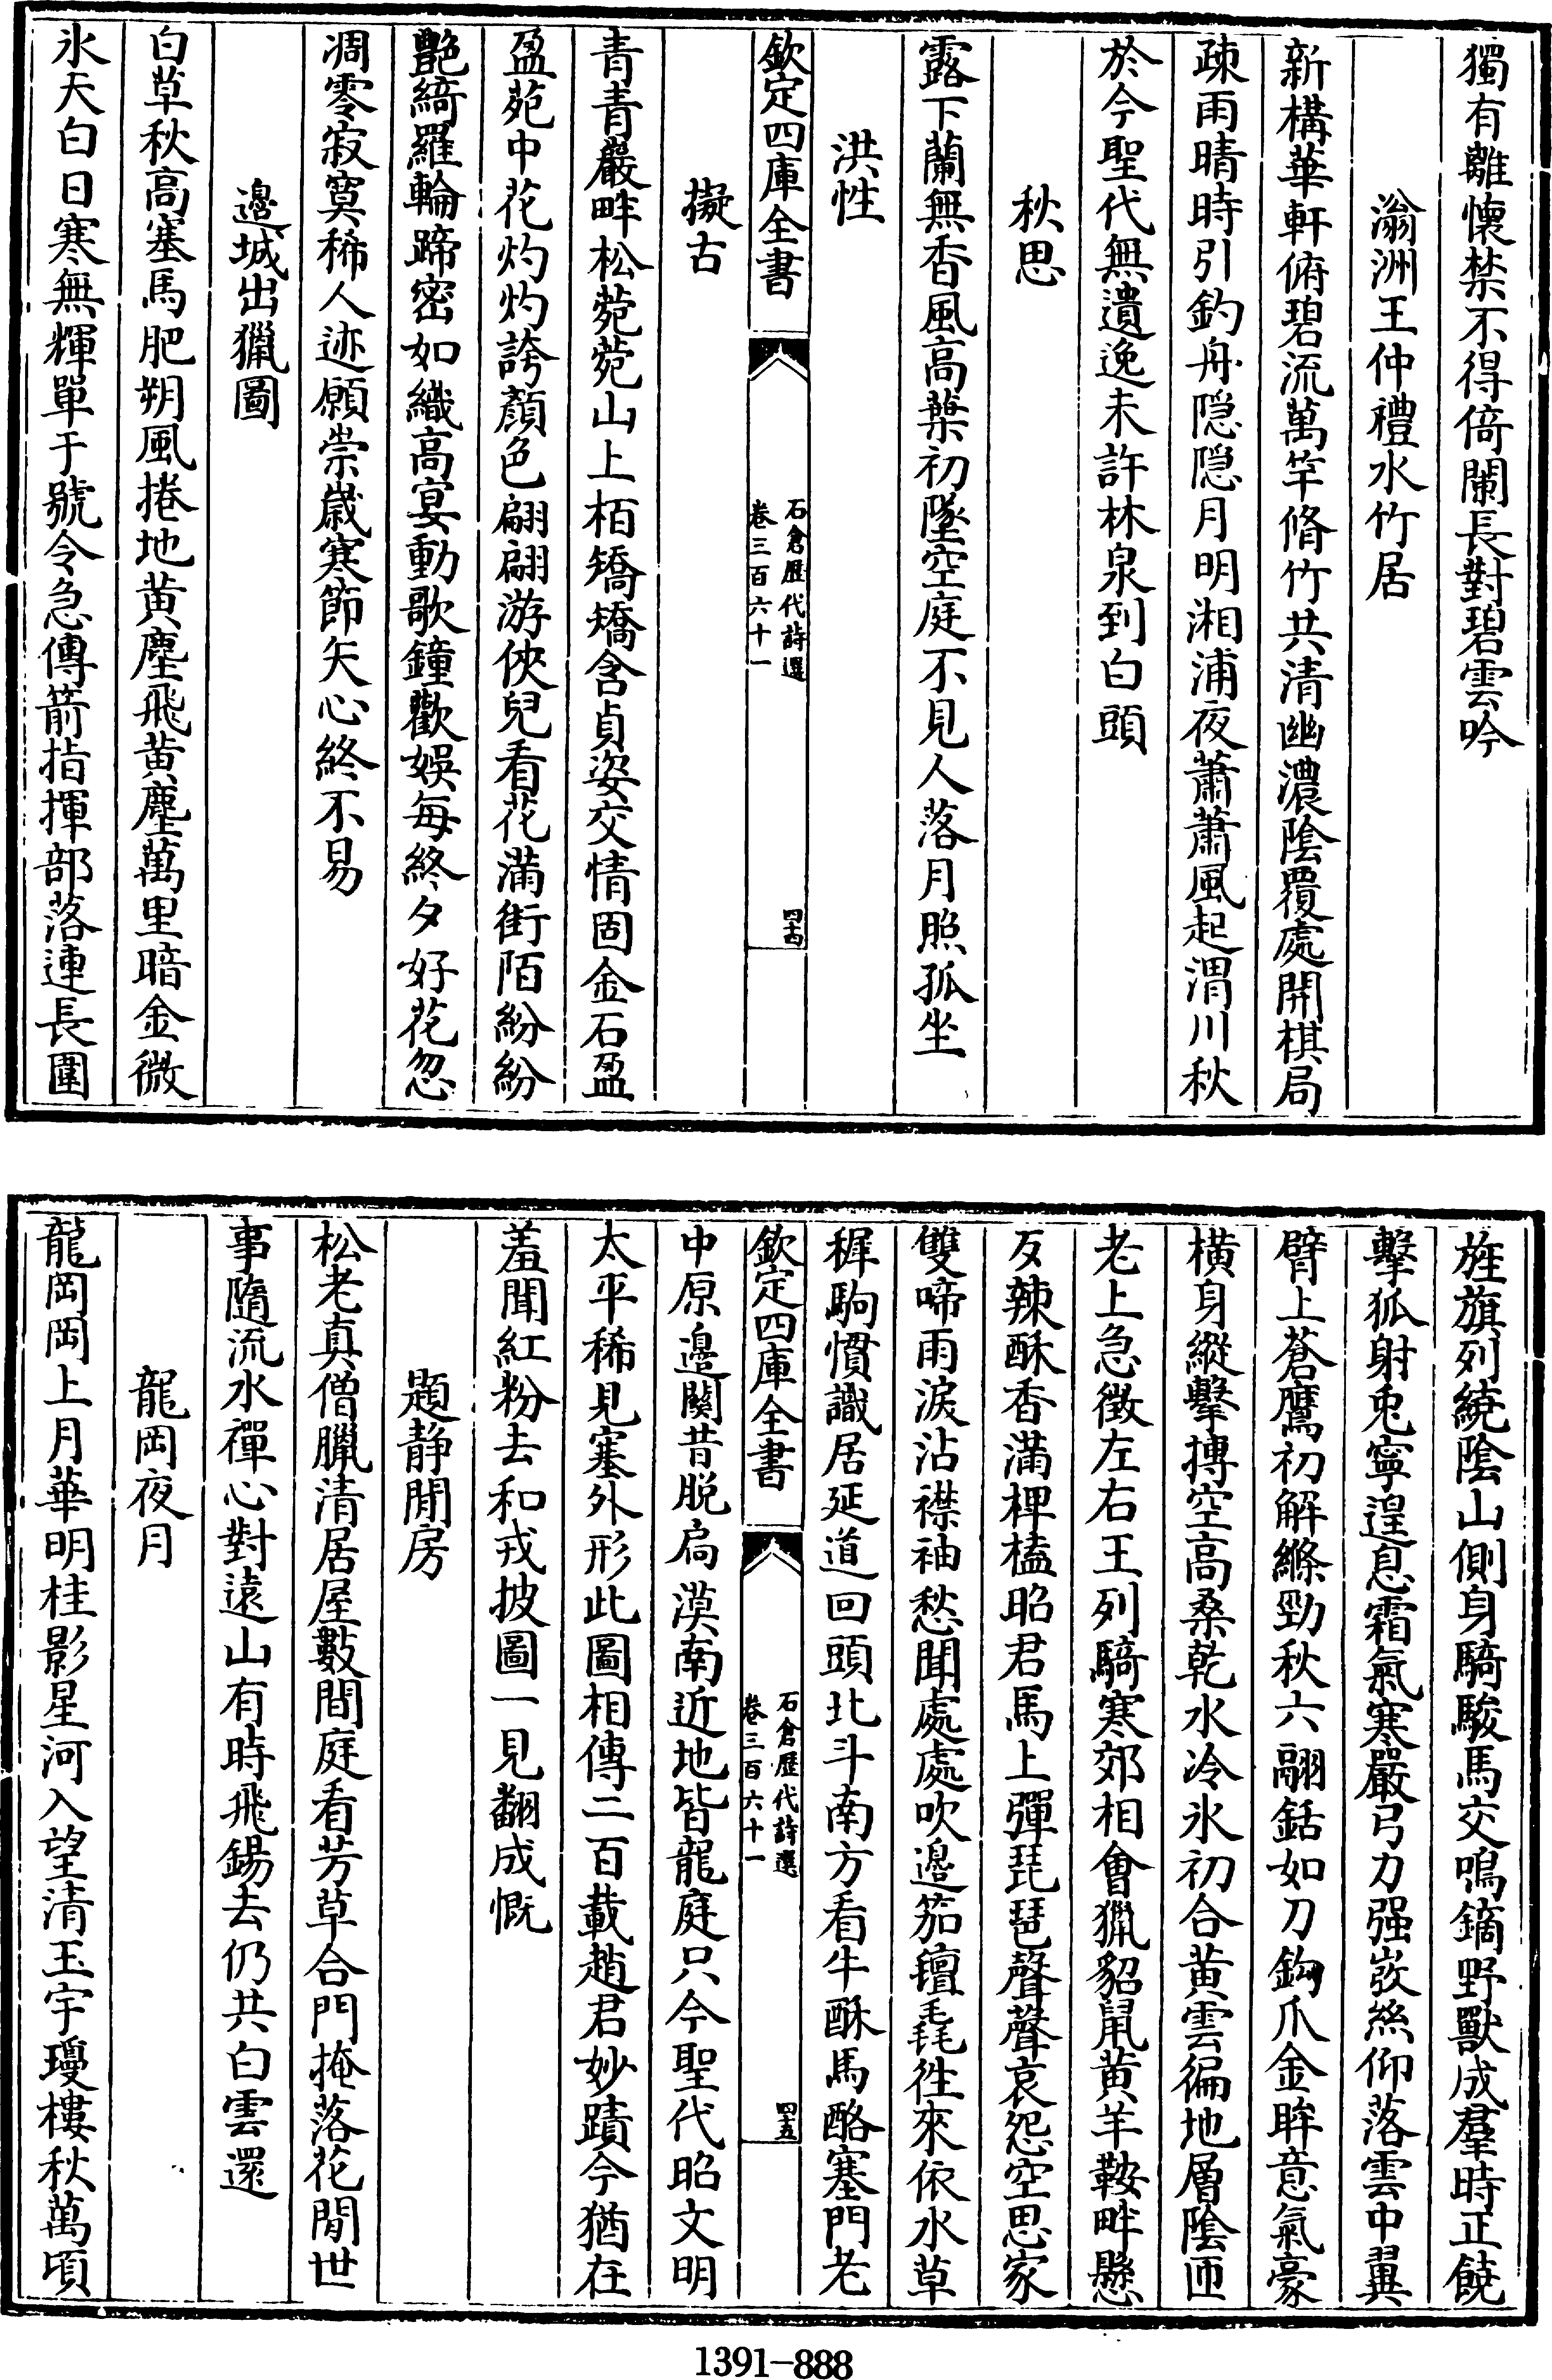 獨有離懷禁不得倚闌長對碧雲吟
滃洲王仲禮水竹居
新構華軒俯碧流萬竿脩竹共清幽濃陰覆處開棋局
疎雨晴時引釣舟隠隠月明湘浦夜蕭蕭風起渭川秋
於今聖代無遺逸未許林泉到白頭
秋思
露下蘭無香風高葉初墜空庭不見人落月照孤坐
洪性
欽定四庫全書
石倉歷代詩選
卷三百六十一
四十四
擬古
青青巖畔松菀菀山上栢矯矯含貞姿交情固金石盈
盈苑中花灼灼誇顔色翩翩游俠兒看花滿街陌紛紛
艷綺羅輪蹄密如織高宴動歌鐘歡娛每終夕好花忽
凋零寂寞稀人迹願崇歲寒節矢心終不易
邊城出獵圖
白草秋高塞馬肥朔風捲地黄塵飛黄塵萬里暗金微
氷天白日寒無輝單于號令急傳箭指揮部落連長圍
旌旗列繞陰山側身騎駿馬交鳴鏑野獸成羣時正饒
擊狐射兎寧遑息霜氣寒嚴弓力强弦絲仰落雲中翼
臂上蒼鷹初解絛勁秋六翮銛如刀鈎爪金眸意氣豪
横身縱擊摶空高桑乾水冷氷初合黄雲徧地層陰匝
老上急徵左右王列騎寒郊相會獵貂鼠黄羊鞍畔懸
炙辣酥香滿椑榼昭君馬上彈琵琶聲聲哀怨空思家
雙啼雨淚沾襟袖愁聞處處吹邊笳氊毳徃來依水草
穉駒慣識居延道回頭北斗南方看牛酥馬酪塞門老
欽定四庫全書
石倉歷代詩選
卷三百六十一
四十五
中原邊關昔脱扃漠南近地皆龍庭只今聖代昭文明
太平稀見塞外形此圖相傳二百載趙君妙蹟今猶在
羞聞紅粉去和戎披圖一見翻成慨
題静閒房
松老真僧臘清居屋數間庭看芳草合門掩落花閒世
事隨流水禪心對遠山有時飛錫去仍共白雲還
龍岡夜月
龍岡岡上月華明桂影星河入望清玉宇瓊樓秋萬頃
1391-888